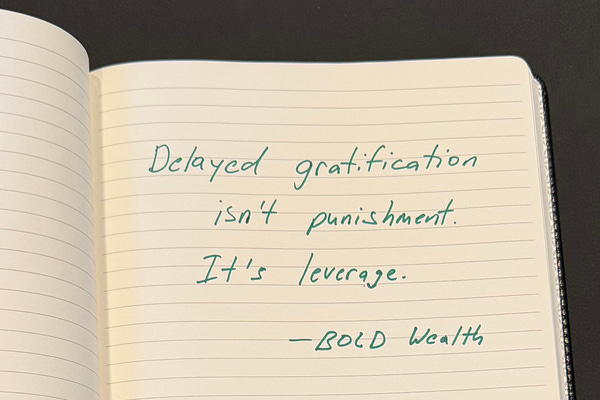 Delayed gratification
isn't punishment.
It's leverage.
—BOLD Wealth